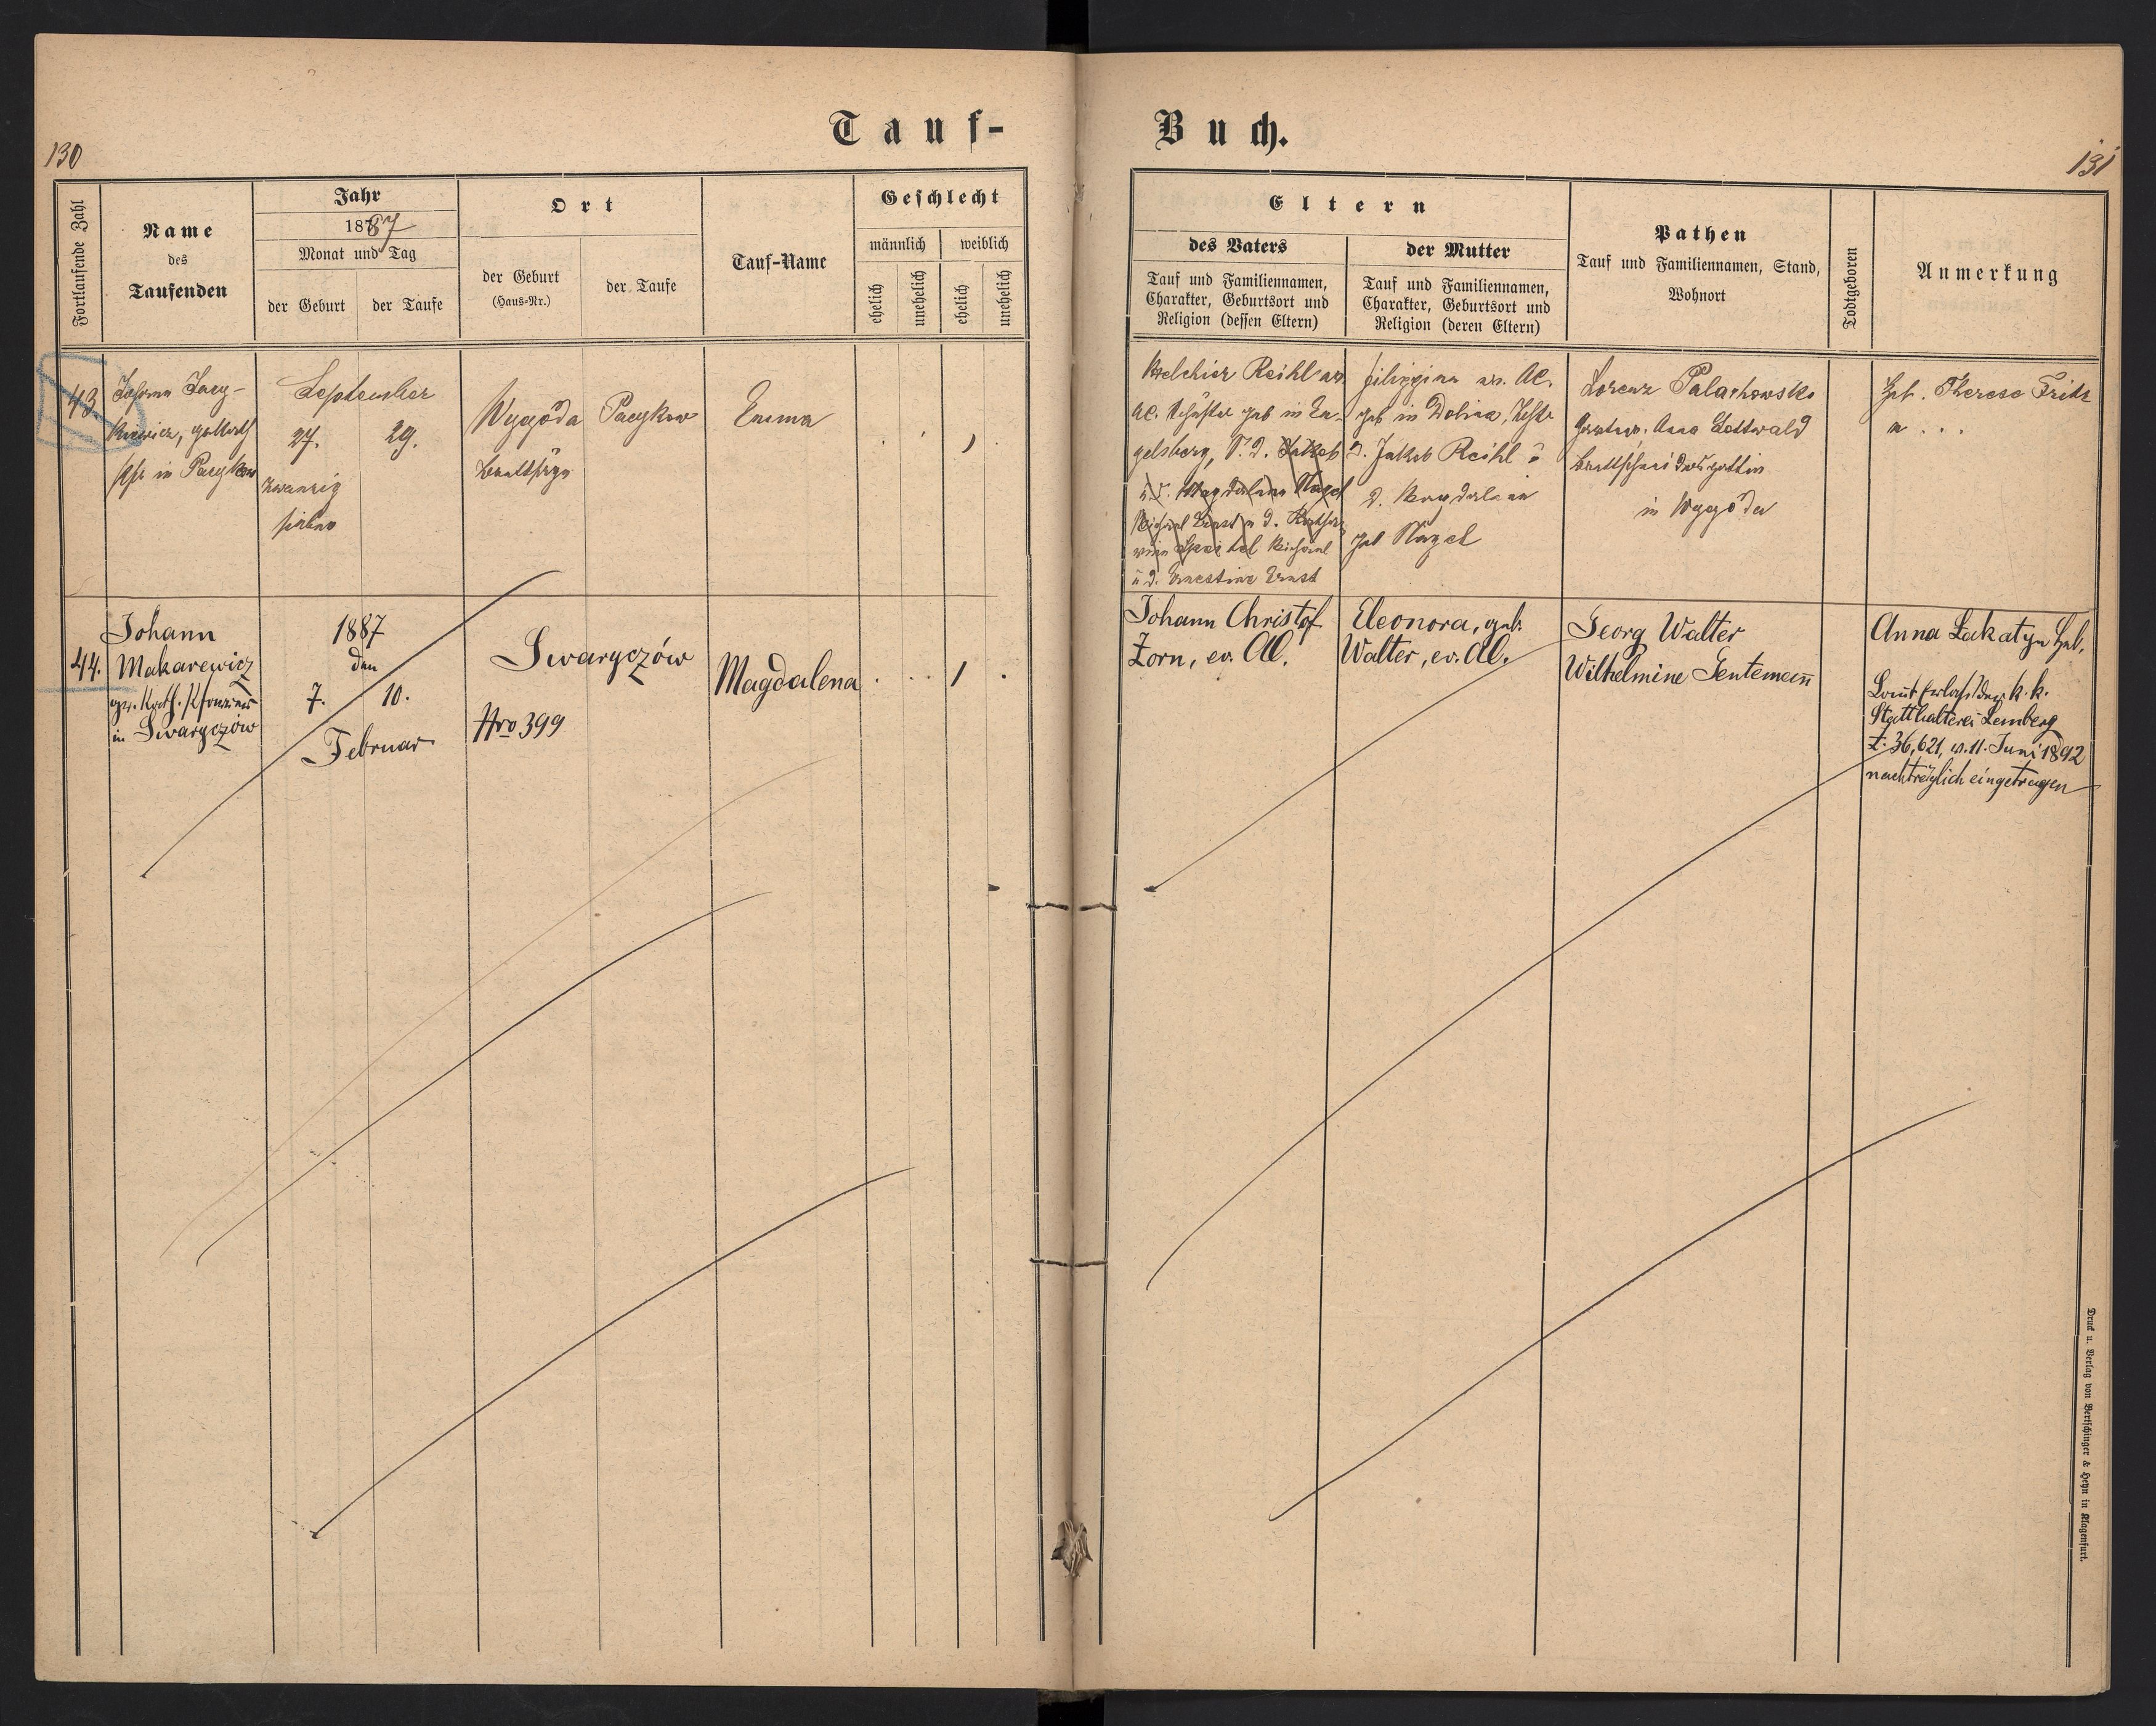 Tauf-
Buch.
130
131
Fortlaufende Zahl
Name
des
Taufenden
Jahr
1887
Monat und Tag
der Geburt
der Taufe
Ort
der Geburt
(Haus-Nr.)
der Taufe
Tauf-Name
Geschlecht
männlich
weiblich
ehelich
unehelich
ehelich
unehelich
Eltern
des Vaters
Tauf und Familiennamen,
Charakter, Geburtsort und
Religion (dessen Eltern)
der Mutter
Tauf und Familiennamen,
Charakter, Geburtsort und
Religion (deren Eltern)
Pathen
Tauf und Familiennamen, Stand,
Wohnort
Todtgeboren
Anmerkung
43.
Johann
in Pacykow
September
27.
29.
zwanzig
sieben
Wygoda
Pacykow
Emma
Melchior Reihl ev.
AC. geb in En-
gelsberg, S. d. Jakob
u. d. Magdalena Nagel
Michael Ernst u d. Katha-
rina Michael
u d. Ernestine Ernst
ev. AC.
geb in Dolina, Tchtr
d. Jakob Reihl u
d. Magdalena
geb Nagel
Lorenz Palachowski
Anna Gottwald
in Wygoda
Heb. Therese Fritz
44.
Johann
Makarewicz
gr. Kath. Pfarrer
in Swaryczów
1887
den
7.
10.
Februar
Swaryczów
Nro 399
Magdalena
1
Johann Christof
Zorn, ev. AC.
Eleonora, geb.
Walter, ev. AC.
Georg Walter
Wilhelmine Gentemann
Anna Łakatyn Heb.
Laut Erlaß der k. k.
Statthalterei Lemberg
Z: 36,621, v. 11. Juni 1892
nachträglich eingetragen
Druck u. Verlag von Bertschinger & Heyn in Klagenfurt.